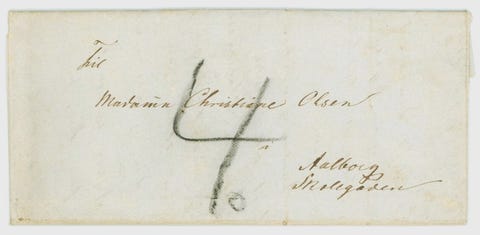 Til
Madame Christiane Olsen
4
Aalborg
Skolegaden